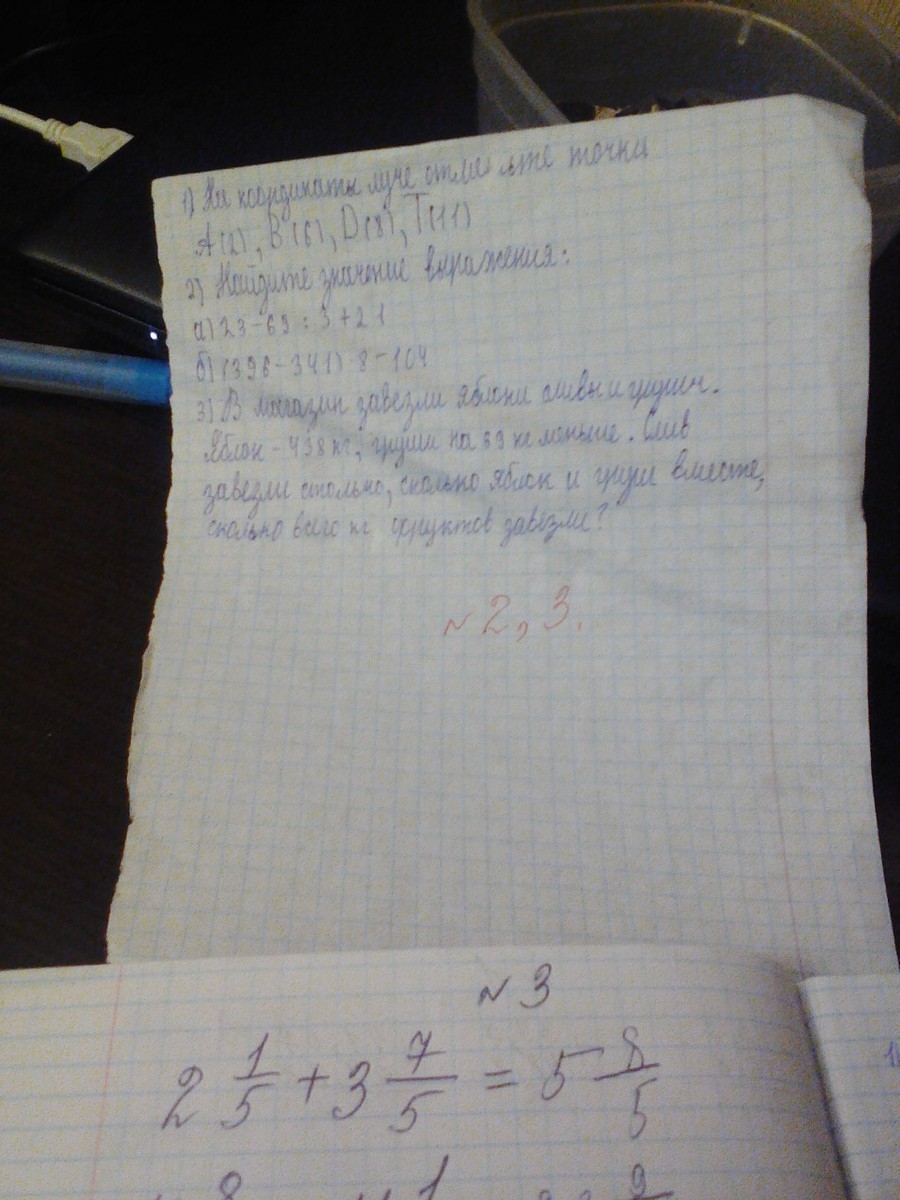 1) На координаты луче отметьте точки
A(2), B(6), D(8), T(11)
2) Найдите значение выражения:
а) 23-69:3+21
б) (396-341) 8-104
3) В магазин завезли яблоки сливы и груши.
Яблок - 438 кг, груши на 69 кг меньше. Слив
завезли столько, сколько яблок и груш вместе,
сколько всего кг фруктов завезли?
№2, 3.
№3
2 1/5 + 3 7/5 = 5 8/5